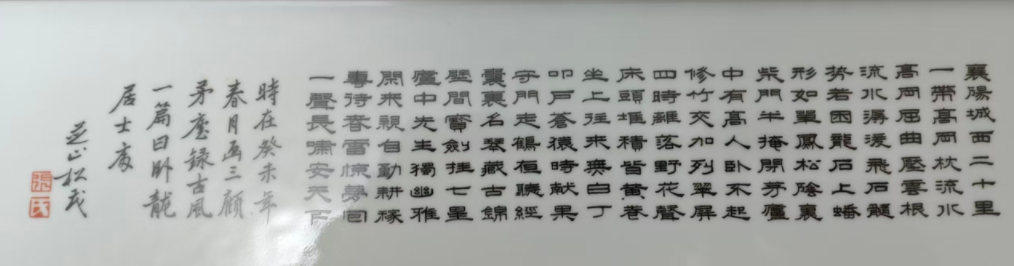 襄陽城西二十里
一帶高岡枕流水
高岡屈曲壓雲根
流水潺湲飛石髓
势若困龍石上蟠
形如單鳳松陰裏
柴門半掩閉茅廬
中有高人卧不起
修竹交加列翠屏
四時離落野花聲
床頭堆積皆黄卷
坐上往來無白丁
叩戶蒼猿時献果
守門老鶴夜聽經
囊裏名琴藏古錦
壁間寳劍挂七星
廬中先生獨幽雅
閑來親自勤耕稼
專待春雷驚夢回
一聲長嘯安天下
時在癸未年
春月画三顧
茅廬録古風
一篇曰卧龍
居士處
松茂
張氏